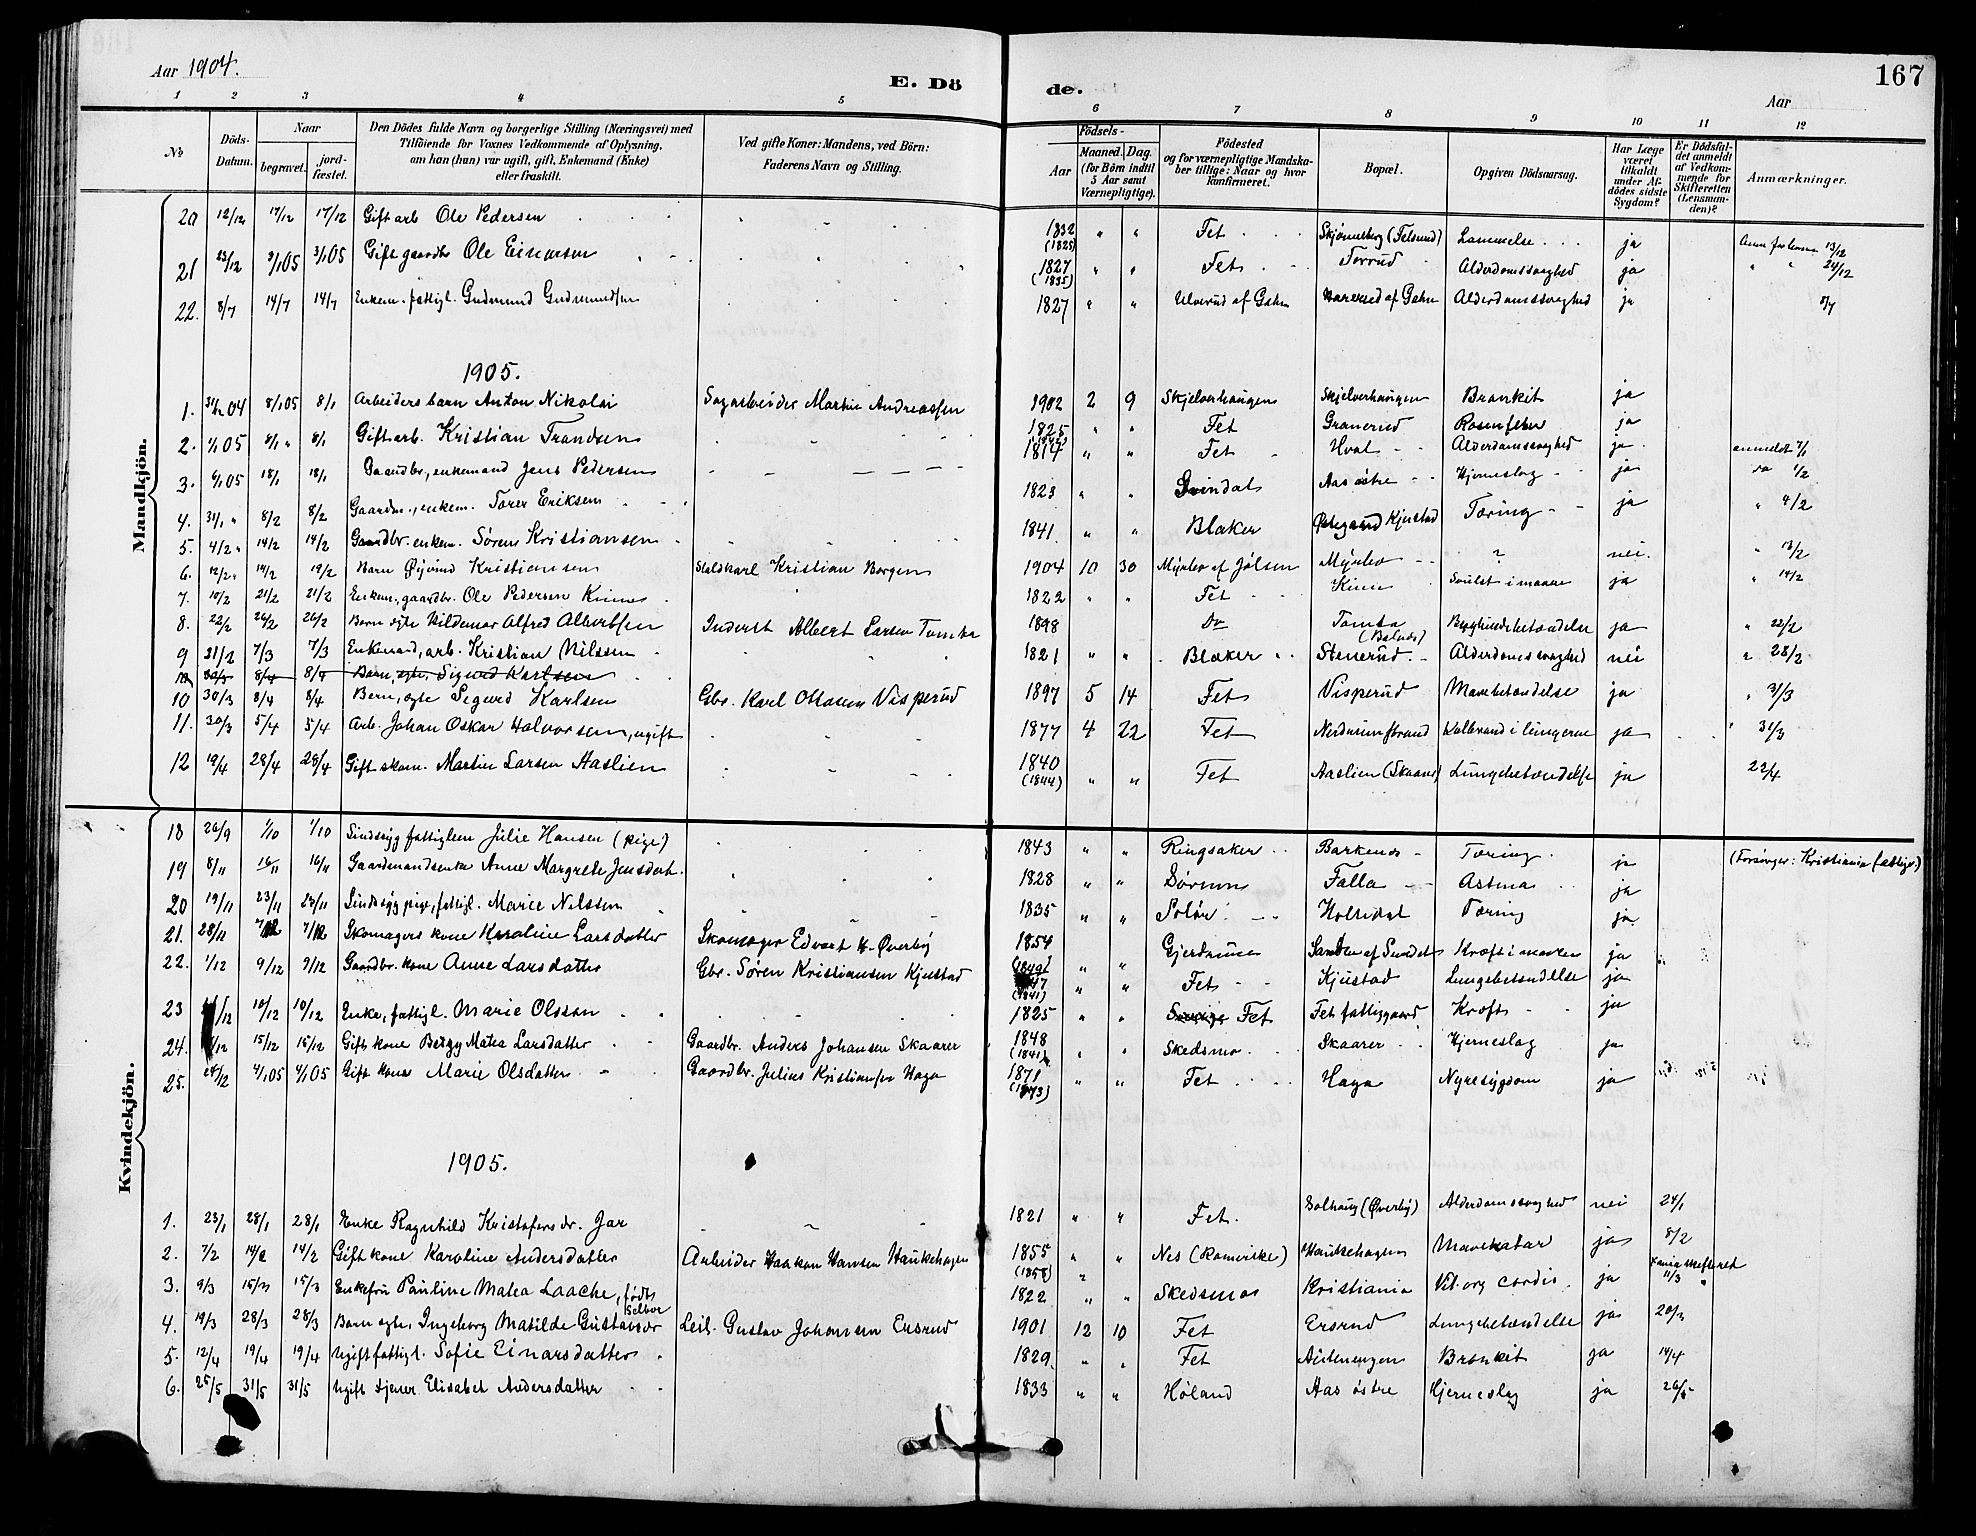 Aar 1904.
E. Dö
de.
Aar
167
1 2 3 4 5 6 7 8 9 10 11 12
No
Döds-Datum.
Naar
begravet.
jordfæstet.
Den Dödes fulde Navn og borgerlige Stilling (Næringsvei) med
Tilföiende for Voxnes Vedkommende af Oplysning,
om han (hun) var ugift, gift, Enkemand (Enke)
eller fraskilt.
Ved gifte Koner: Mandens, ved Börn:
Faderens Navn og Stilling.
Födsels-
Aar
Maaned. Dag.
(for Börn indtil
5 Aar samt
Værnepligtige).
Födested
og for værnepligtige Mandska-
ber tillige: Naar og hvor
konfirmeret.
Bopæl.
Opgiven Dödsaarsag.
Har Læge
været
tilkaldt
under Af-
dödes sidste
Sygdom?
Er Dödsfal-
det anmeldt
af Vedkom-
mende for
Skifteretten
(Lensman-
den)?
Anmærkninger.
Mandkjön.
20 12/12 17/12 17/12 Gift arb Ole Pedersen 1832 (1825) " " Fet Skjønnesberg (Fetsund) Lammelse ja 13/12
21 23/12 3/1 05 3/1 05 Gift gaardbr Ole Einarsen 1827 (1835) " " Fet Torrud Alderdomssvaghed ja " " 24/12
22. 8/7 14/7 14/7 Enkem. fattigl. Gudmund Gudmundsen 1827 " " Ulverud af Gahn af Gahn Alderdomssvaghed ja 8/7
1905.
1. 31/12 04 8/1 05 8/1 Arbeiders barn Anton Nikolai Sagarbeider Martin Andreassen 1902 2 9 Skjelverhaugen Skjelverhaugen Bronkit ja
2. 1/1 05 8/1 " 8/1 Gift arb. Kristian Trandsen 1825 " " Fet Granerud Rosenfeber ja
3. 6/1 05 18/1 18/1 Gaardbr., enkemand Jens Pedersen 1817 " " Fet Hval Alderdomssvaghed ja anmeldt 7/1
4. 31/1 " 8/2 8/2 Gaardm., enkem. Torer Eriksen 1823 " " Svindal Aas østre Hjerneslag ja do 1/2
5. 4/2 " 14/2 14/2 Gaardbr. enkem. Søren Kristiansen 1841 " " Blaker Østegaard Kjustad Tæring ja " 4/2
6. 12/2 " 19/2 19/2 Barn Øyvind Kristiansen Staldkarl Kristian Borgen 1904 10 30 Myrebo af Jølsen Myrebo ? nei " 13/2
7. 10/2 21/2 21/2 Enkem., gaardbr. Ole Pedersen Kinnes 1822 " " Fet Kinn Svulst i maven ja " 14/2
8. 22/2 26/2 26/2 Barn ægte Hildemar Alfred Albertsen Inderst Albert Larsen Tomta 1898 do Tomta (Balnes) ja " 22/2
9 21/2 7/3 7/3 Enkemand, arb. Kristian Nilssen 1821 " " Blaker Stenerud Alderdomssvaghed nei " 28/2
10 30/3 8/4 8/4 Barn, ægte. Sigurd Karlsen
10 30/3 8/4 8/4 Barn, ægte Sigurd Karlsen Gbr. Karl Ottosen Visperud 1897 5 14 Fet Visperud Mavebetændelse ja " 31/3
11. 30/3 5/4 5/4 Arb. Johan Oskar Halvorsen, ugift 1877 4 22 Fet Nerdrumstrand Kolbrand i lungerne ja " 31/3
12 19/4 28/4 28/4 Gift skom. Martin Larsen Aaslien 1840 (1844) " " Fet Aaslien (Skaarer) Lungebetændelse ja 22/4
Kvindekjön.
18 26/9 1/10 1/10 Sindssyg fattiglem Julie Hansen (pige) 1843 " " Ringsaker Barkenes Tæring ja (Forsørger: Kristiania fattigv.)
19 8/11 16/11 16/11 Gaardmandsenke Anne Margrete Jensdatt. 1828 " " Sørum Falla Astma ja
20 19/11 23/11 23/11 Sindssyg pige, fattigl. Marie Nilssen 1835 " " Solør Holtedal Tæring ja
21. 28/11 7/12 7/12 Skomagers kone Karoline Larsdatter Skomager Edvart H. Øverby 1854 Gjerdrum Sanden af Sundet Kræft i maven ja
22. 1/12 9/12 9/12 Gaardbr. kone Anne Larsdatter Gbr. Søren Kristiansen Kjustad (1841) " " Fet Kjustad Lungebetændelse ja
23 /12 10/12 10/12 Enke, fattigl. Marie Olsson 1825 " " Sverige Fet Fet fattiggaard Kræft ja
24. /12 15/12 15/12 Gift kone Berggy Matea Larsdatter Gaardbr. Anders Johansen Skaarer 1848 (1841) " " Skedsmo Skaarer Hjerneslag ja
25. 24/12 4/1 05 4/1 05 Gift kone Marie Olsdatter Gaardbr. Julius Kristiansen Haga 1871 (1873) " " Fet Haga Nyresygdom ja
1905.
1. 23/1 28/1 28/1 Enke Ragnhild Kristofersdr. Jar 1821 " " Fet. Solhaug (Øverby) Alderdomssvaghed nei 24/1
2. 7/2 14/2 14/2 Gift kone Karoline Andersdatter Arbeider Haakon Hansen Haukehagen 1855 (1858) " " Nes (Romerike) Haukehagen Mavekatar ja 8/2
3. 9/3 15/3 15/3 Enkefru Pauline Matea Laache, født Selboe 1822 " " Skedsmo Kristiania Vit. org cordis ja skifteret 11/3
4. 19/3 28/3 28/3 Barn ægte, Ingeborg Matilde Gustavsdr Leil. Gustav Johansen Ersrud 1901 12 10 Fet Ersrud Lungebetændelse ja 20/3
5. 12/4 19/4 19/4 Ugift fattigl. Sofie Einarsdatter 1829 " " Fet Austenengen Bronkit ja 14/4
6. 25/5 31/5 31/5 Ugift tjener. Elisabet Andersdatter 1833 " " Høland Aas østre Hjerneslag ja 26/5